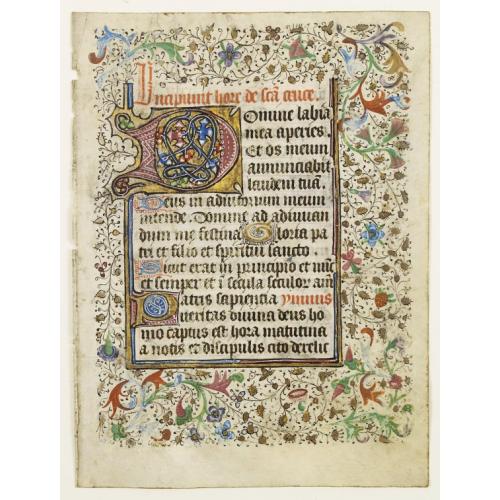 Incipiunt hore de scã cruce.
Domine labia
mea aperies.
Et os meum
annunciabit
laudem tuã.
Deus in adiutorium meum
intende. Domine ad adiuuan
dum me festina Gloria pa
tri et filio et spiritui sancto
Sicut erat in principio et nũc
et semper et ĩ secula seculor amẽ
Patris sapientia ymnus
ueritas diuina deus ho
mo captus est hora matutina
a notis et discipulis cito derelic